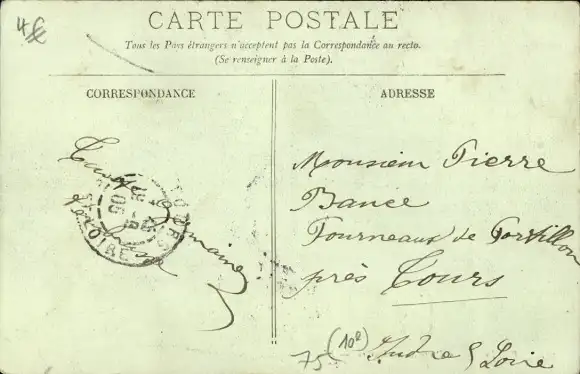 4€
CARTE POSTALE
Tous les Pays étrangers n'acceptent pas la Correspondance au recto.
(Se renseigner à la Poste).
CORRESPONDANCE
ADRESSE
Monsieur Pierre
Bance
Fourneaux de Portillon
près Tours
Indre & Loire
75 (10e)
Germaine
TOURS
LOIRE